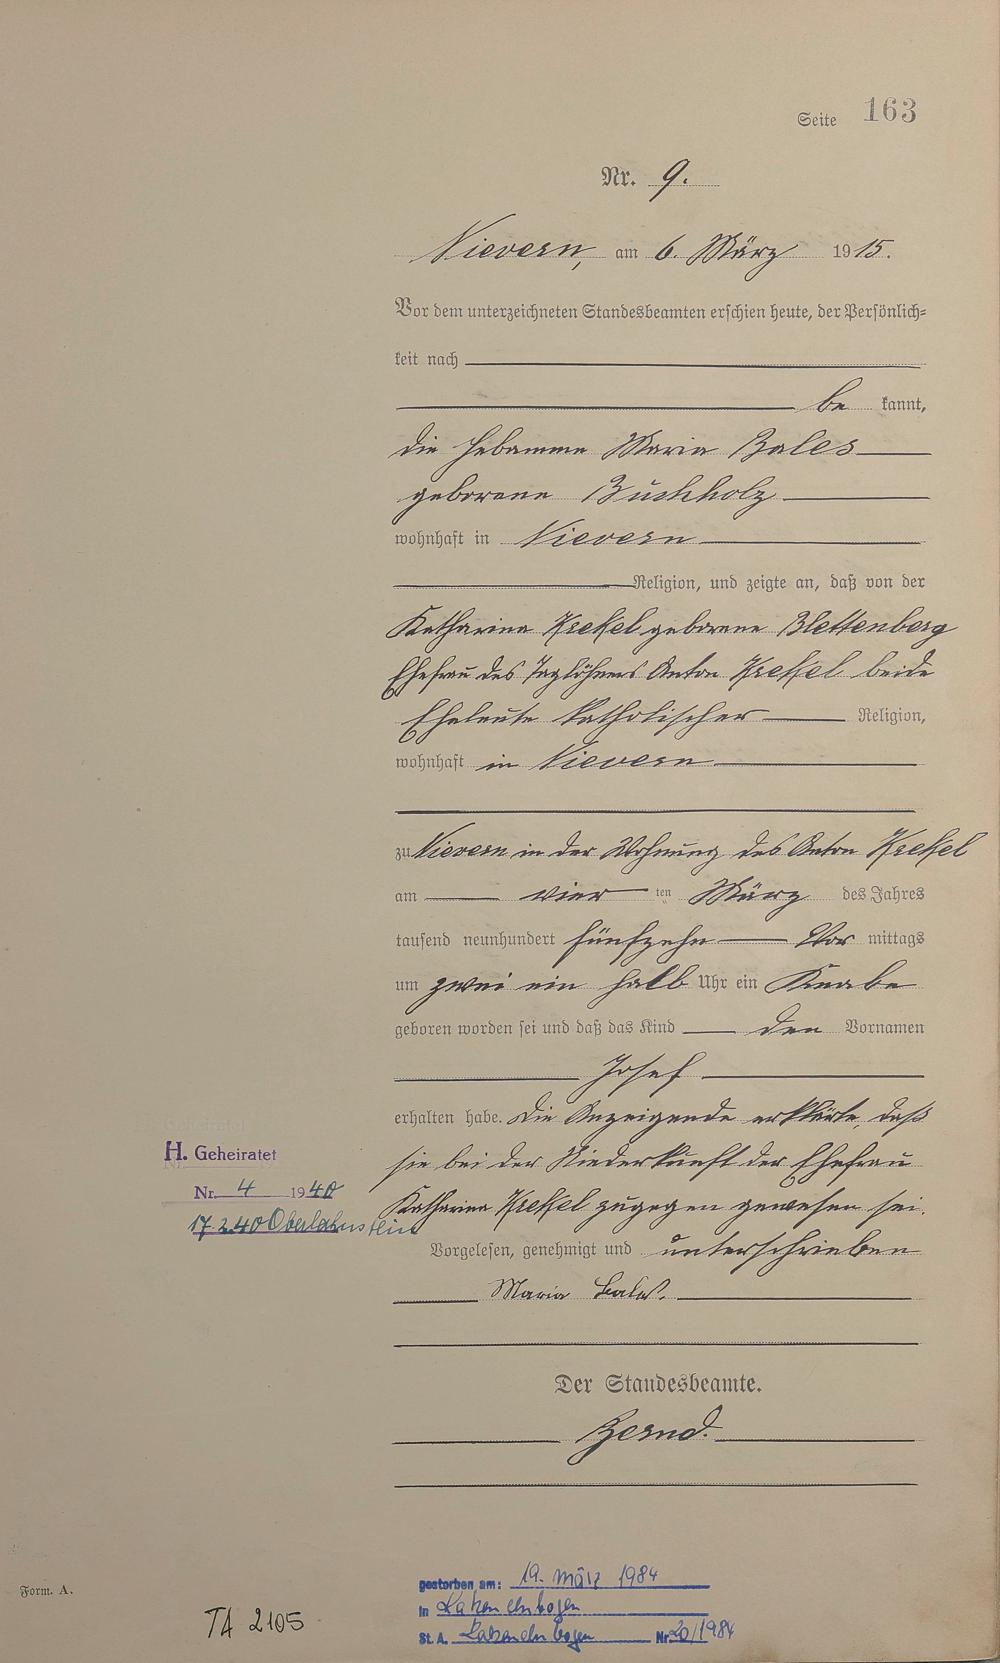 Seite 163
Nr. 9.
Nievern, am 6. März 1915.
Vor dem unterzeichneten Standesbeamten erschien heute, der Persönlich=
keit nach
be kannt,
die Hebamme Maria Bales
geborene Buchholz
wohnhaft in Nievern
Religion, und zeigte an, daß von der
Katharina Krekel geborene Blettenberg
Ehefrau des Taglöhners Anton Krekel beide
Eheleute katholischer Religion,
wohnhaft in Nievern
zu Nievern in der Wohnung des Anton Krekel
am vier ten März des Jahres
tausend neunhundert fünfzehn Vor mittags
um zwei ein halb Uhr ein Knabe
geboren worden sei und daß das Kind den Vornamen
Josef
erhalten habe. Die Anzeigende erklärte, daß
sie bei der Niederkunft der Ehefrau
Katharina Krekel zugegen gewesen sei.
Vorgelesen, genehmigt und unterschrieben
Maria Bales.
Der Standesbeamte.
Zernd.
H. Geheiratet
Nr. 4 1940
17.2.40 Oberlahnstein
Form. A.
TA 2105
gestorben am: 19. März 1984
in Katzenelnbogen
St. A. Katzenelnbogen Nr. 20/1984